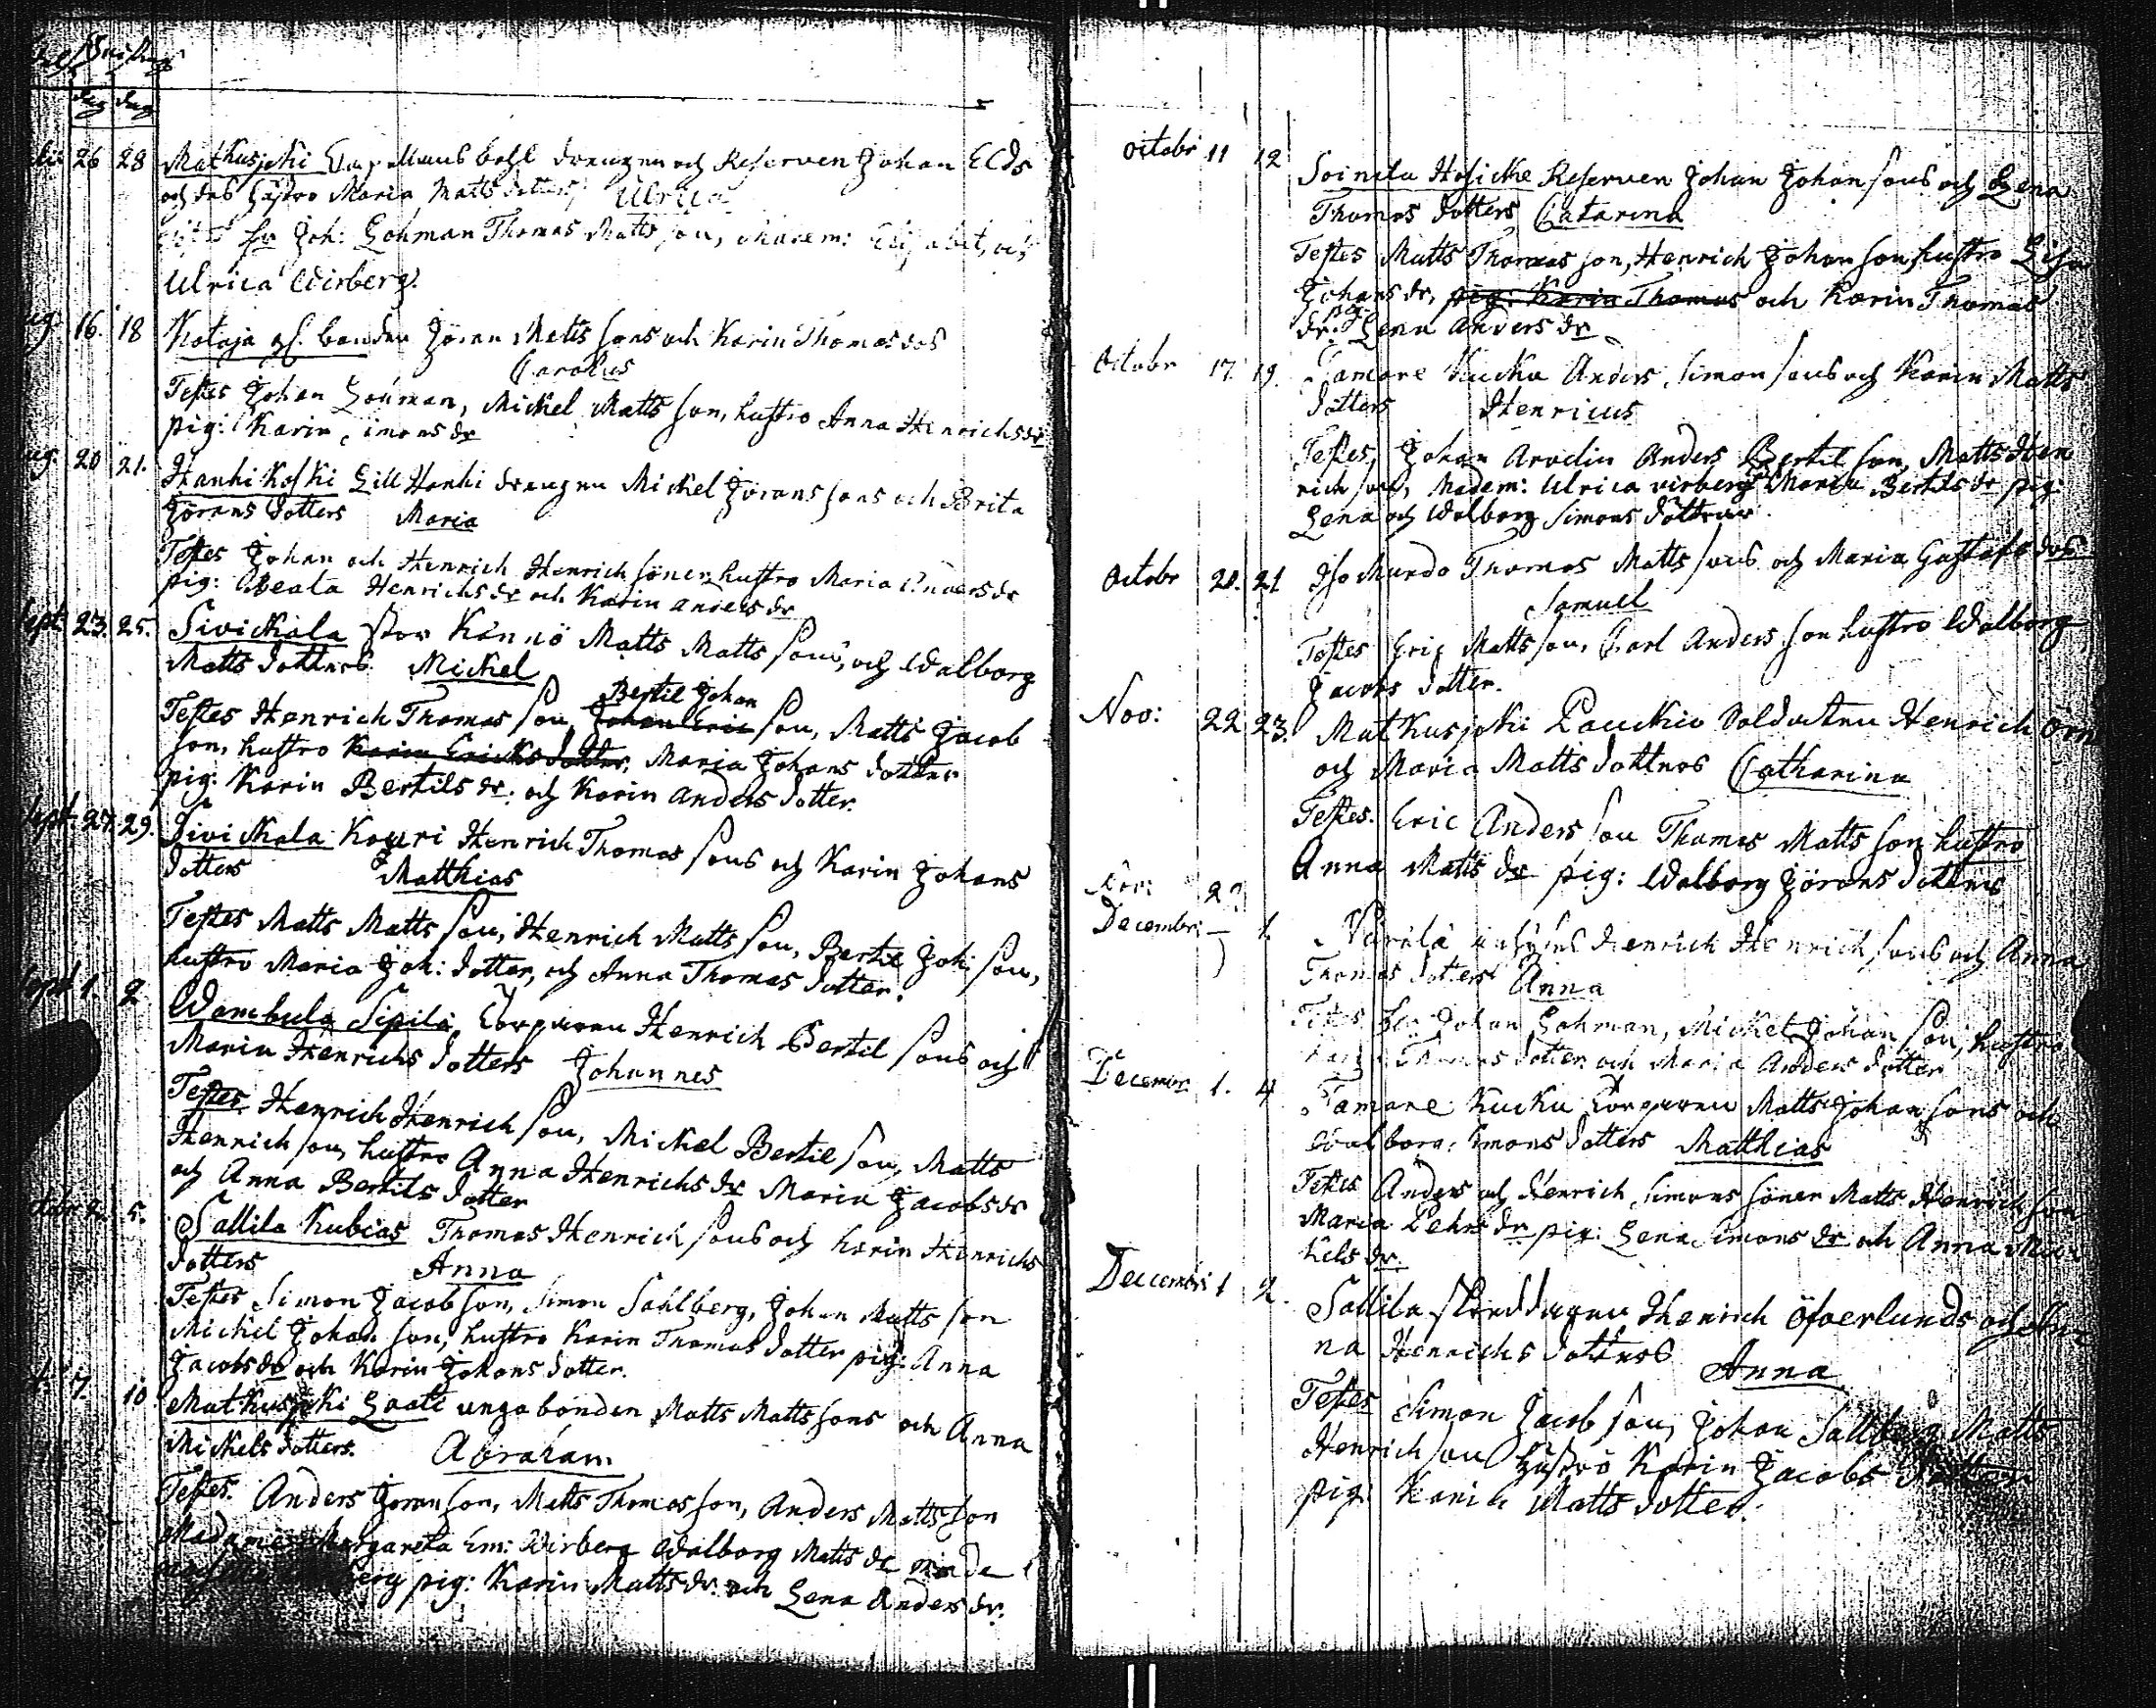 dag dag
26 28 Matkusjoki Capellansbohl drengen och Reserven Johan Elds
och des hustro Maria Matts dotters Ulrica
Joh: Lohman Thomas Matts son, Madem: Elisabet, och
Ulrica Wirberg.
16. 18 Kotaja bonden Jöran Matts sons och Karin Thomas dos
Carolus
Testes Johan Lohman, Mickel Matts son, hustro Anna Henrichs dr
pig: Karin Simons dr
20 21. Hanhi Koski Lill Hanhi drengen Mickel Jörans sons och Brita
Jörans dotters Maria
Testes Johan och Henrich Henrich söner, hustro Maria Anders dr
pig: Beata Henrichs dr och Karin anders dr
Sept: 23. 25. Sivickala stor Kännö Matts Matts sons, och Walborg
Matts dotters Mickel
Bertil Johan
Testes Henrich Thomas son, Johan Eric son, Matts Jacob
son, hustro Karin Ericks dotter, Maria Johans dotter
pig: Karin Bertils dr. och Karin Anders dotter.
Sept: 27. 29. Sivickala Kouri Henrich Thomas sons och Karin Johans
dotters Matthias
Testes Matts Matts son, Henrich Matts son, Bertil Joh: son,
hustro Maria Joh: dotter, och Anna Thomas dotter.
Sept 1. 2 Wambula Sipilä Torparen Henrich Bertil sons och
Maria Henrichs dotters Johannes
Testes Henrich Henrich son, Mickel Bertil son, Matts
Henrich son, hustro Anna Henrichs dr Maria Jacobs dr
och Anna Bertils dotter
5. Sallila Kubias Thomas Henrich sons och Karin Henrichs
dotters Anna
Testes Simon Jacob son, Simon Sahlberg, Johan Matts son
Mickel Johan son, hustro Karin Thomas dotter pig: Anna
Jacobs dr och Karin Johans dotter.
7. 10 Matkusjoki Laati unga bonden Matts Matts sons och Anna
Mickels dotters. Abraham
Testes. Anders Jöran son, Matts Thomas son, Anders Matts son
Madame Margareta Em: Wirberg Walborg Matts dr
pig: Karin Matts dr. och Lena Anders dr.
Octobr 11 12 Soinila Hosicke Reserven Johan Johan sons och Lena
Thomas dotters Catarina
Testes Matts Thomas son, Henrich Johan son hustro Lisa
Johans dr, pig: Karin Thomas och Karin Thomas
dr. pig: Lena Anders dr
Octobr 17. 19. Tamare Kucku Anders Simon sons och Karin Matts
dotters Henricus
Testes, Johan Arvelin Anders Bertil son, Matts Hen
rich son, Madem: Ulrica Wirberg Maria Bertils dr pig:
Lena och Walborg Simons döttrar.
Octobr 20. 21 Iso Murdo Thomas Matts sons och Maria Gustafs dos
Samuel
Testes Eric Matts son, Carl Anders son hustro Walborg
Jacobs dotter.
Nov: 22 23. Matkusjoki Pauckio Soldaten Henrich Örn
och Maria Matts dotters Catharina
Testes. Eric Anders son Thomas Matts son hustro
Anna Matts dr pig: Walborg Jörans dotter
Nov: 2
Decembr: 1. Henrich Henrich sons och Anna
Thomas dotters Anna
Testes Johan Lohman, Mickel Johan son, hustro
Thomas dotter och Maria Anders dotter
Decembr 1. 4 Tamare Kucku Torparen Matts Johan sons och
Walborg Simons dotters Matthias
Testes Anders och Henrich Simons söner Matts Henrich son
Maria Pehrs dr pig: Lena Simons dr och Anna Mic
kels dr.
Decembr 1 2. Sallila skreddaren Henrich Öfverlunds och An
na Henrichs dotters
Anna
Testes Simon Jacob son, Johan Sallberg Matts
Henrich son hustro Karin Jacobs dotter
pig: Karin Matts dotter.